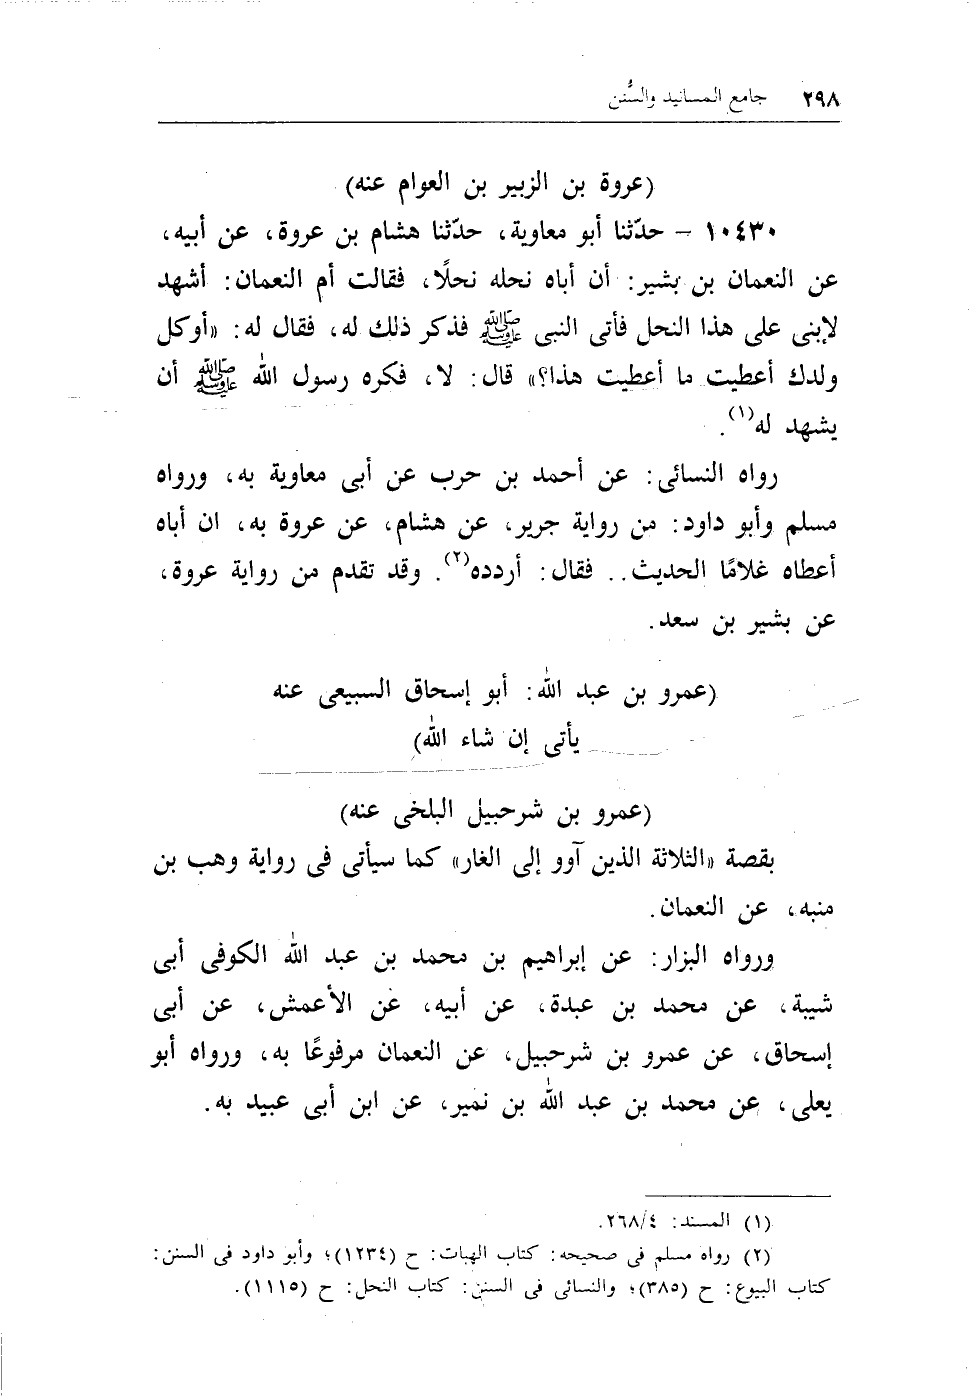 ٢٩٨ جامع المسانيد والسُّنن
(عروة بن الزبير بن العوام عنه)
١٠٤٣٠ - حدّثنا أبو معاوية، حدّثنا هشام بن عروة، عن أبيه،
عن النعمان بن بشير: أن أباه نحله نحلًا، فقالت أم النعمان: أشهد
لإبنى على هذا النحل فأتى النبى ﷺ فذكر ذلك له، فقال له: «أوكل
ولدك أعطيت ما أعطيت هذا؟» قال: لا، فكره رسول الله ﷺ أن
يشهد له(١).
رواه النسائى: عن أحمد بن حرب عن أبى معاوية به، ورواه
مسلم وأبو داود: من رواية جرير، عن هشام، عن عروة به، ان أباه
أعطاه غلامًا الحديث.. فقال: أردده(٢). وقد تقدم من رواية عروة،
عن بشير بن سعد.
(عمرو بن عبد الله: أبو إسحاق السبيعى عنه
يأتى إن شاء الله)
(عمرو بن شرحبيل البلخى عنه)
بقصة «الثلاثة الذين آوو إلى الغار» كما سيأتى فى رواية وهب بن
منبه، عن النعمان.
ورواه البزار: عن إبراهيم بن محمد بن عبد الله الكوفى أبى
شيبة، عن محمد بن عبدة، عن أبيه، عن الأعمش، عن أبى
إسحاق، عن عمرو بن شرحبيل، عن النعمان مرفوعًا به، ورواه أبو
يعلى، عن محمد بن عبد الله بن نمير، عن ابن أبى عبيد به.
(١) المسند: ٢٦٨/٤.
(٢) رواه مسلم فى صحيحه: كتاب الهبات: ح (١٢٣٤)؛ وأبو داود فى السنن:
كتاب البيوع: ح (٣٨٥)؛ والنسائى فى السنن: كتاب النحل: ح (١١١٥).